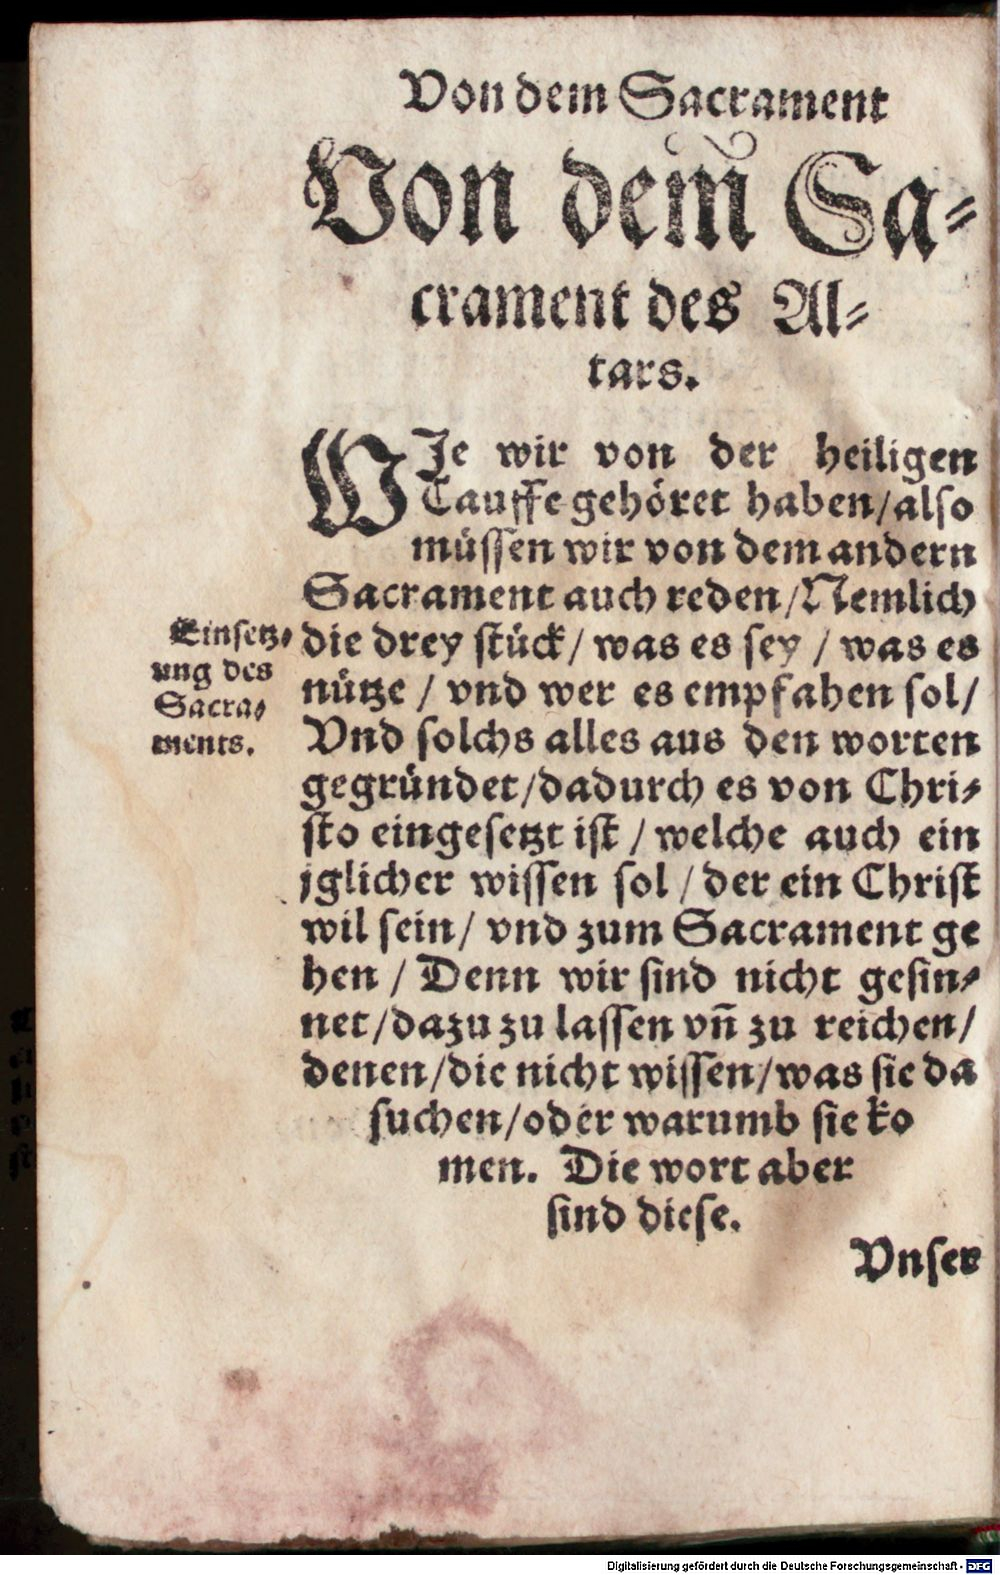 Von dem Sacrament
Von dem Sa-
crament des Al-
tars.
WJe wir von der heiligen
Tauffe gehöret haben/also
müssen wir von dem andern
Sacrament auch reden/Nemlich
die drey stück/ was es sey / was es
nütze / vnd wer es empfahen sol/
Vnd solchs alles aus den worten
gegründet/dadurch es von Chri-
sto eingesetzt ist / welche auch ein
jglicher wissen sol / der ein Christ
wil sein/ vnd zum Sacrament ge
hen / Denn wir sind nicht gesin-
net/dazu zu lassen vn̄ zu reichen/
denen/die nicht wissen/was sie da
suchen/oder warumb sie ko
men. Die wort aber
sind diese.
Vnser
Einsetz-
ung des
Sacra-
ments.
Digitalisierung gefördert durch die Deutsche Forschungsgemeinschaft - DFG